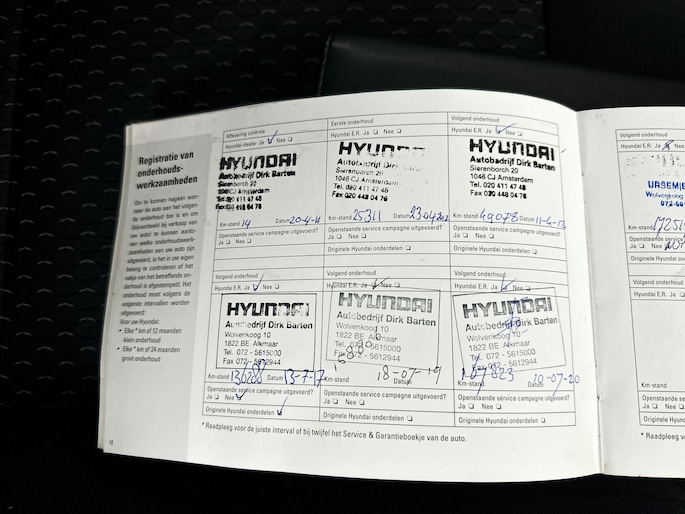 Registratie van
onderhouds-
werkzaamheden
Om te kunnen nagaan wan-
neer de auto aan het volgen-
de onderhoud toe is en om
(bijvoorbeeld) bij verkoop van
uw auto) te kunnen aanto-
nen welke onderhoudswerk-
zaamheden aan uw auto zijn
uitgevoerd, is het in uw eigen
belang te controleren of het
vakje van het betreffende on-
derhoud is afgestempeld. Het
onderhoud moet volgens de
volgende intervallen worden
uitgevoerd:
Voor uw Hyundai:
• Elke * km of 12 maanden
klein onderhoud
• Elke * km of 24 maanden
groot onderhoud
Aflevering controle
Hyundai-dealer Ja Nee
HYUNDAI
Autobedrijf Dirk Barten
Sierenborch 20
1046 CJ Amsterdam
Tel. 020 411 47 48
Fax 020 448 04 76
Km-stand 14 Datum 20-4-11
Openstaande service campagne uitgevoerd?
Ja Nee
Eerste onderhoud
Hyundai E.R. Ja Nee
HYUNDAI
Autobedrijf Dirk Barten
Sierenborch 20
1046 CJ Amsterdam
Tel. 020 411 47 48
Fax 020 448 04 76
Km-stand 25311 Datum 23-04-2012
Openstaande service campagne uitgevoerd?
Ja Nee
Originele Hyundai onderdelen
Volgend onderhoud
Hyundai E.R. Ja Nee
HYUNDAI
Autobedrijf Dirk Barten
Sierenborch 20
1046 CJ Amsterdam
Tel. 020 411 47 48
Fax 020 448 04 76
Km-stand 49078 Datum 11-4-13
Openstaande service campagne uitgevoerd?
Ja Nee
Originele Hyundai onderdelen
Volgend onderhoud
Hyundai E.R. Ja Nee
HYUNDAI
Autobedrijf Dirk Barten
Wolvenkoog 10
1822 BE Alkmaar
Tel. 072 - 5615000
Fax 072 - 5612944
Km-stand 136288 Datum 13-7-17
Openstaande service campagne uitgevoerd?
Ja Nee
Originele Hyundai onderdelen
Volgend onderhoud
Hyundai E.R. Ja Nee
HYUNDAI
Autobedrijf Dirk Barten
Wolvenkoog 10
1822 BE Alkmaar
Tel. 072 - 5615000
Fax 072 - 5612944
Km-stand Datum 18-07-19
Openstaande service campagne uitgevoerd?
Ja Nee
Originele Hyundai onderdelen
Volgend onderhoud
Hyundai E.R. Ja Nee
HYUNDAI
Autobedrijf Dirk Barten
Wolvenkoog 10
1822 BE Alkmaar
Tel. 072 - 5615000
Fax 072 - 5612944
Km-stand Datum 10-07-20
Openstaande service campagne uitgevoerd?
Ja Nee
Originele Hyundai onderdelen
* Raadpleeg voor de juiste interval of bij twijfel het Service & Garantieboekje van de auto.
Volgend onderhoud
Hyundai E.R. Ja Nee
Km-stand
Openstaande service
Ja Nee
Originele Hyundai
Volgend onderhoud
Hyundai E.R. Ja Nee
Km-stand
Openstaande service
Ja Nee
Originele Hyundai
* Raadpleeg